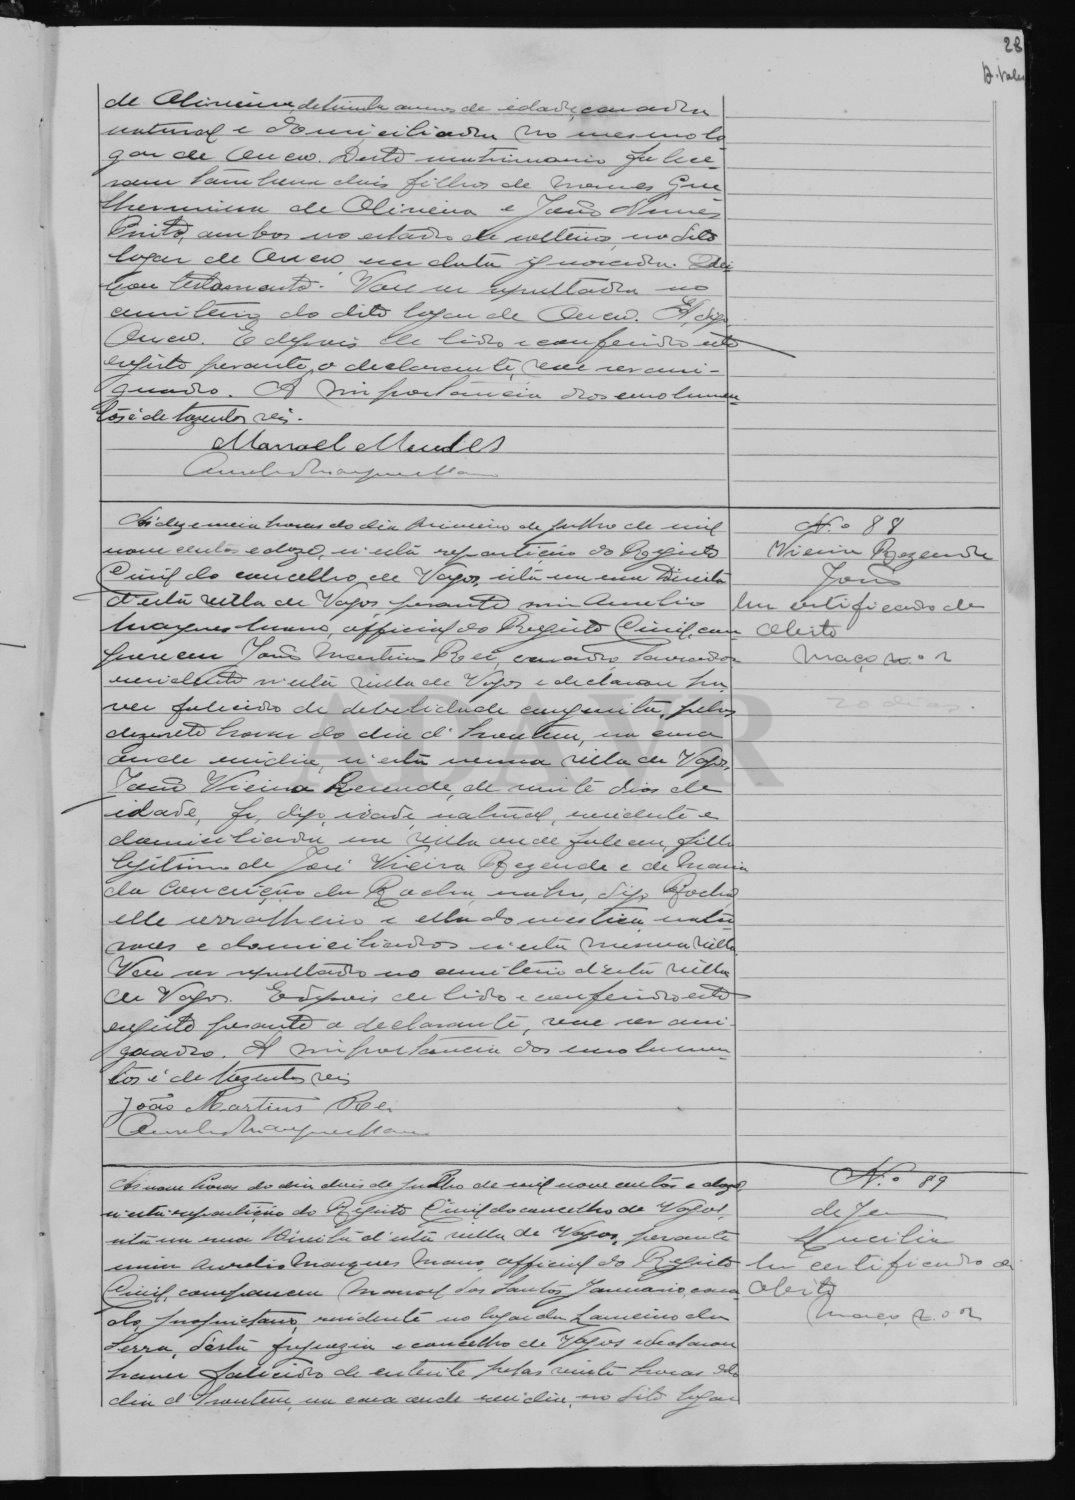 28
de Oliveira, de trinta annos de idade, casada
natural e domiciliada no mesmo lo
gar de Ouca. Deste matrimonio falece
ram tambem dois filhos de nomes Gui
lhermina de Oliveira e João Nunes
Brito, ambos no estado de solteiro, no dito
logar de Ouca em data ignorada. Dei
xou testamento. Vae ser sepultada no
cemiterio do dito logar de Ouca. digo
Ouca. E depois de lido e conferido este
registo perante o declarante, vae ser assi-
gnado. A importancia dos emolumen-
tos é de trezentos reis.
Manoel Mendes
Aurelio Marques Mano
Ás dez e meia horas do dia primeiro de Julho de mil
nove centos e doze, n'esta repartição do Registo
Civil do concelho de Vagos, sita na rua Direita
d'esta villa de Vagos, perante mim Aurelio
Marques Mano, official do Registo Civil, com
pareceu João Martins Rei, casado, lavrador
residente n'esta villa de Vagos e declarou ha
ver falecido de debilidade congenita, pelas
dezesete horas do dia d'hontem, na casa
onde residia, n'esta mesma villa de Vagos,
João Vieira Rezende, de vinte dias de
idade, digo, idade, natural, residente e
domiciliado na villa onde faleceu, filho
legitimo de José Vieira Rezende e de Maria
da Conceição da Rocha, digo, Rocha,
elle serralheiro e ella domestica, natu-
raes e domiciliados n'esta mesma villa.
Vae ser sepultado no cemiterio d'esta villa
de Vagos. E depois de lido e conferido este
registo perante o declarante, vae ser assi-
gnado. A importancia dos emolumen-
tos é de trezentos reis
João Martins Rei
Aurelio Marques Mano
N.º 88
Vieira Rezende
João
Um certificado de
obito
Maço n.º 2
20 dias.
Ás nove horas do dia dois de Julho de mil nove centos e doze,
n'esta repartição do Registo Civil do concelho de Vagos,
sita na rua Direita d'esta villa de Vagos, perante
mim Aurelio Marques Mano, official do Registo
Civil, compareceu Manoel dos Santos Januario, casa
do, proprietario, residente no logar da Lameiro da
Serra, desta freguezia e concelho de Vagos e declarou
haver falecido de enterite pelas vinte horas do
dia d'hontem, na casa onde residia, no dito logar
N.º 89
de Je
Lucilia
Um certificado de
obito
Maço n.º 2
ADAVR